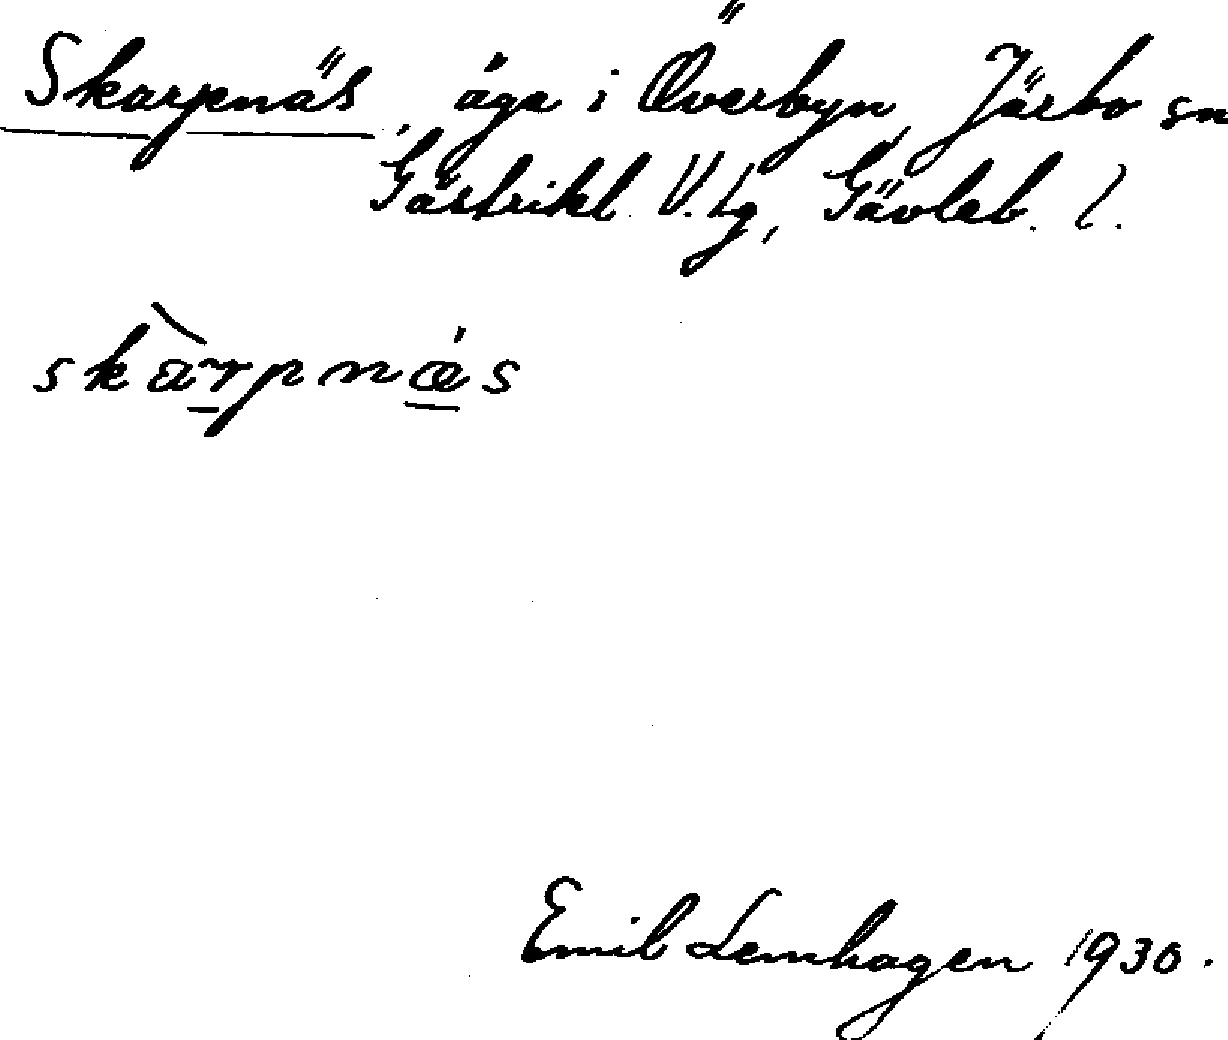 Skarpnäs, äga i Överbyn, Järbo sn
Gästrikl. V. tg, Gävleb. l.
skàrpnǽs
Emil Lemhagen 1930.